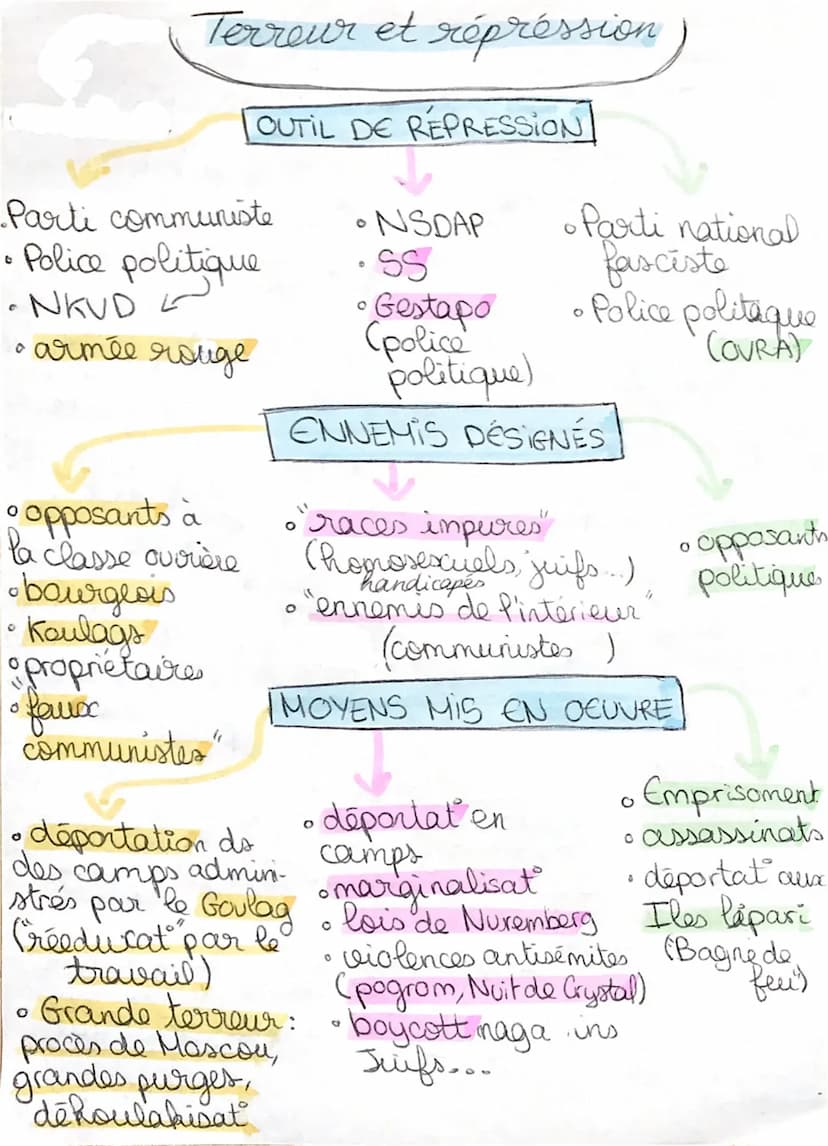 Terreur et répréssion
OUTIL DE RÉPRESSION
.Parti communiste
• Police politique
• NKVD
• armée rouge
• NSDAP
• SS
• Gestapo
(police
politique)
• Parti national
fasciste
• Police politique
(OVRA)
ENNEMIS DÉSIGNÉS
• opposants à
la classe ouvrière
• bourgeois
• Koulags
• propriétaires
• "faux
communistes"
• "races impures"
(homosexuels, juifs...)
handicapés
• "ennemis de l'intérieur"
(communistes )
• opposants
politiques
MOYENS MIS EN OEUVRE
• déportation ds
des camps admini-
strés par le Goulag
("rééducat° par le
travail)
• Grande terreur :
procès de Moscou,
grandes purges,
dékoulakisat°
• déportat° en
camps
• marginalisat°
• lois de Nuremberg
• violences antisémites
(pogrom, Nuit de Crystal)
• boycott maga ins
Juifs...
• Emprisoment
• assassinats
• déportat° aux
Iles lipari
(Bagne de
feu)